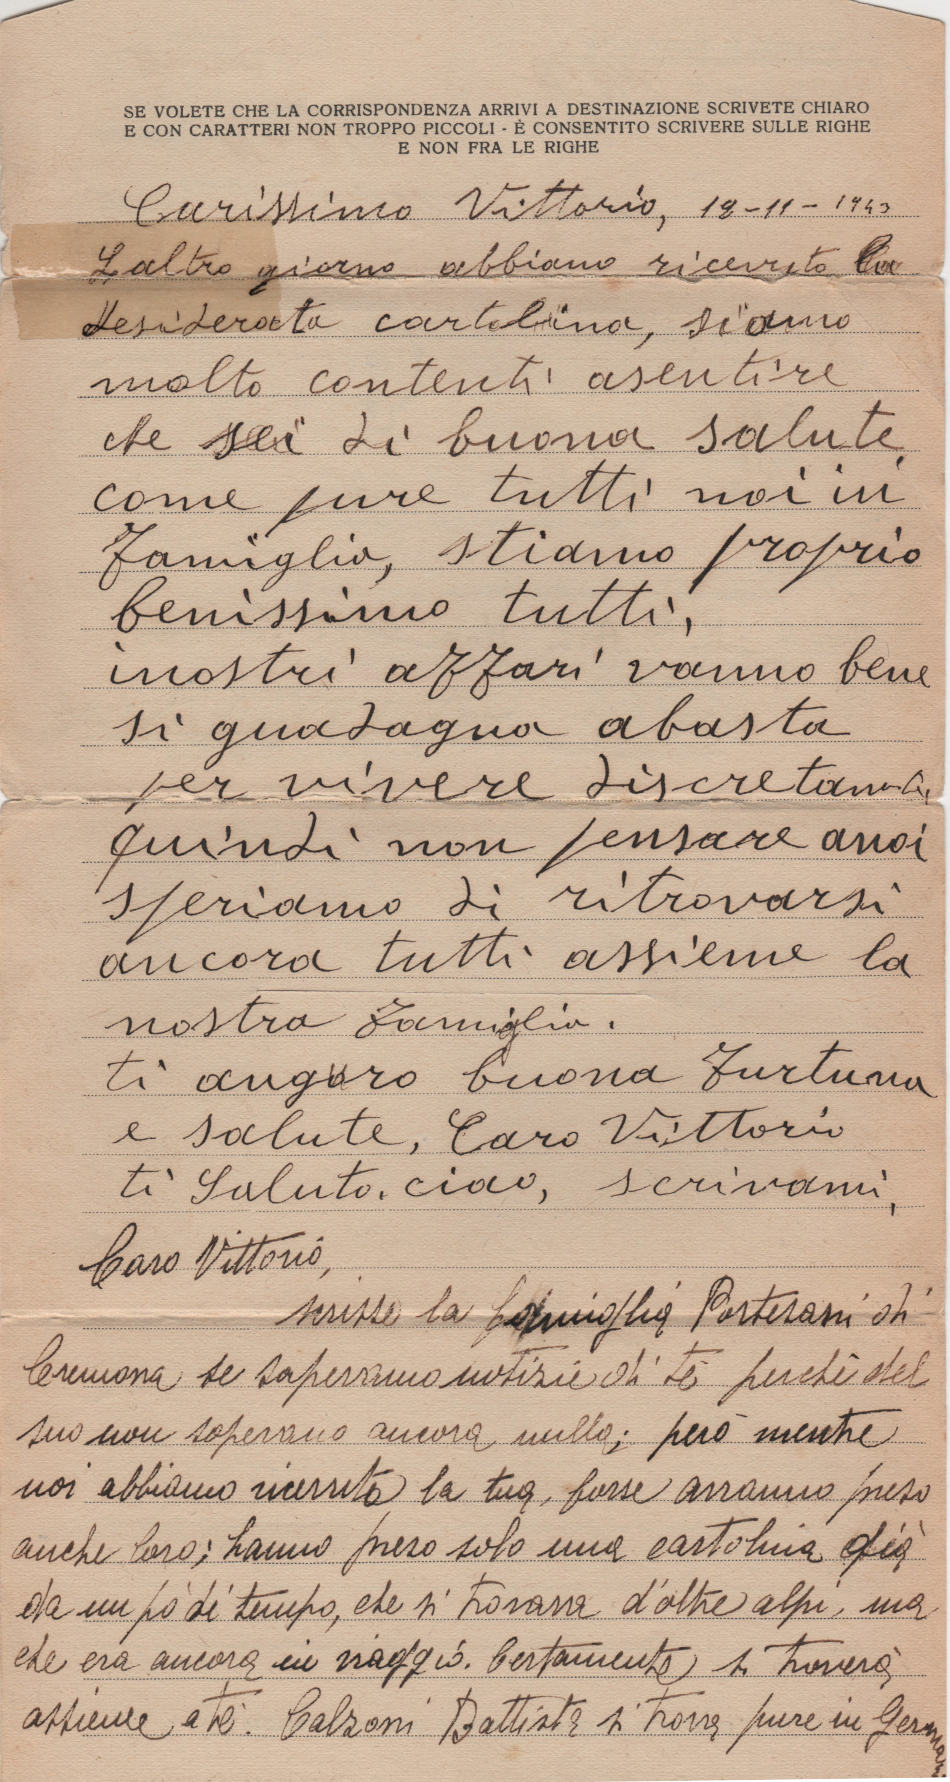 SE VOLETE CHE LA CORRISPONDENZA ARRIVI A DESTINAZIONE SCRIVETE CHIARO
E CON CARATTERI NON TROPPO PICCOLI - È CONSENTITO SCRIVERE SULLE RIGHE
E NON FRA LE RIGHE
Carissimo Vittorio, 18-11-1943
L'altro giorno abbiamo ricevuto la
desiderata cartolina, siamo
molto contenti asentire
che sei di buona salute,
come pure tutti noi in
famiglia, stiamo proprio
benissimo tutti,
inostri affari vanno bene
si guadagna abasta
per vivere discretamte,
quindi non pensare anoi
speriamo di ritrovarsi
ancora tutti assieme la
nostra famiglia.
ti auguro buona furtuna
e salute, Caro Vittorio
ti Saluto. ciao, scrivami,
Caro Vittorio,
scrisse la famiglia Portesani di
Cremona se sapevamo notizie di te perchè del
suo non sapevano ancora nulla; però mentre
noi abbiamo ricevuto la tua, forse avranno preso
anche loro; hanno preso solo una cartolina già
da un pò di tempo, che si trovava d'oltre alpi, ma
che era ancora in viaggio. Certamente si troverà
assieme a te. Calzoni Battista si trova pure in Germani